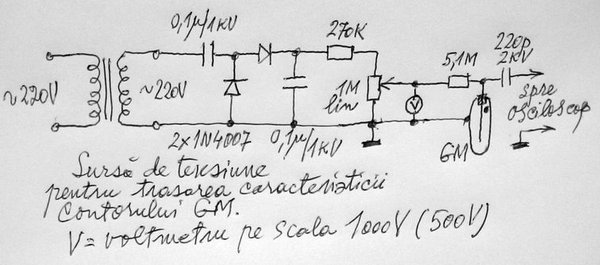 0,1µ/1KV
270K
220p
2KV
5,1M
~220V
~220V
1M
lin
V
spre
osciloscop
2x1N4007
0,1µ/1KV
GM
Sursă de tensiune
pentru trasarea caracteristicii
contorului GM.
V= voltmetru pe scala 1000V (500V)